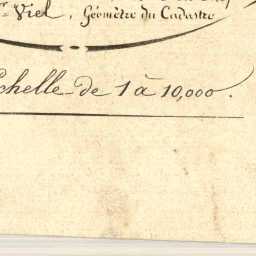 Viel, Géomètre du Cadastre
chelle de 1 à 10,000.